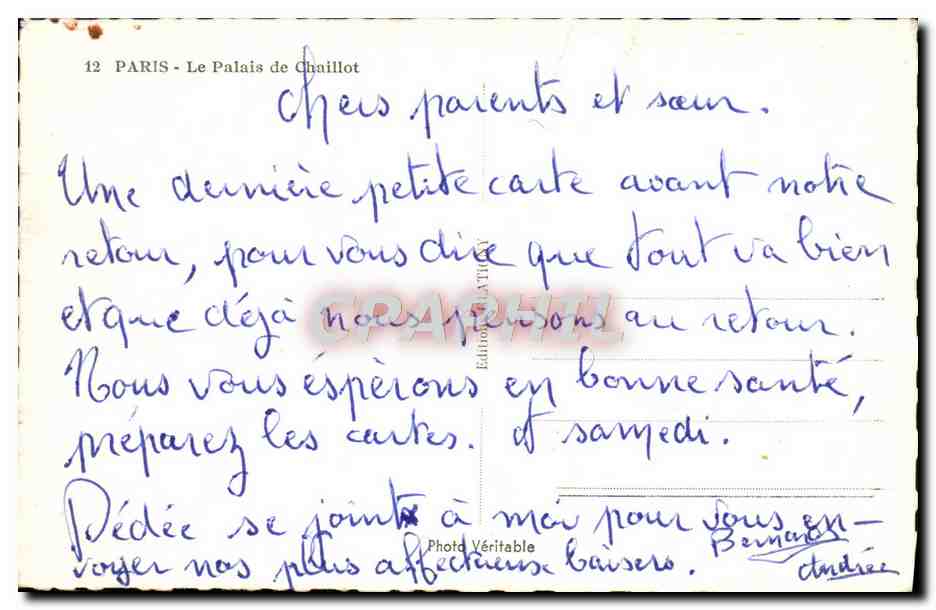 12 PARIS - Le Palais de Chaillot
Chers parents et sœur.
Une dernière petite carte avant notre
retour, pour vous dire que tout va bien
et que déjà nous pensons au retour.
Nous vous éspèrons en bonne santé,
préparez les cartes. A samedi.
Dédée se joint à moi pour vous en-
voyer nos plus affectueux baisers.
Bernard
Andrée
Photo Véritable
CPAPHIL